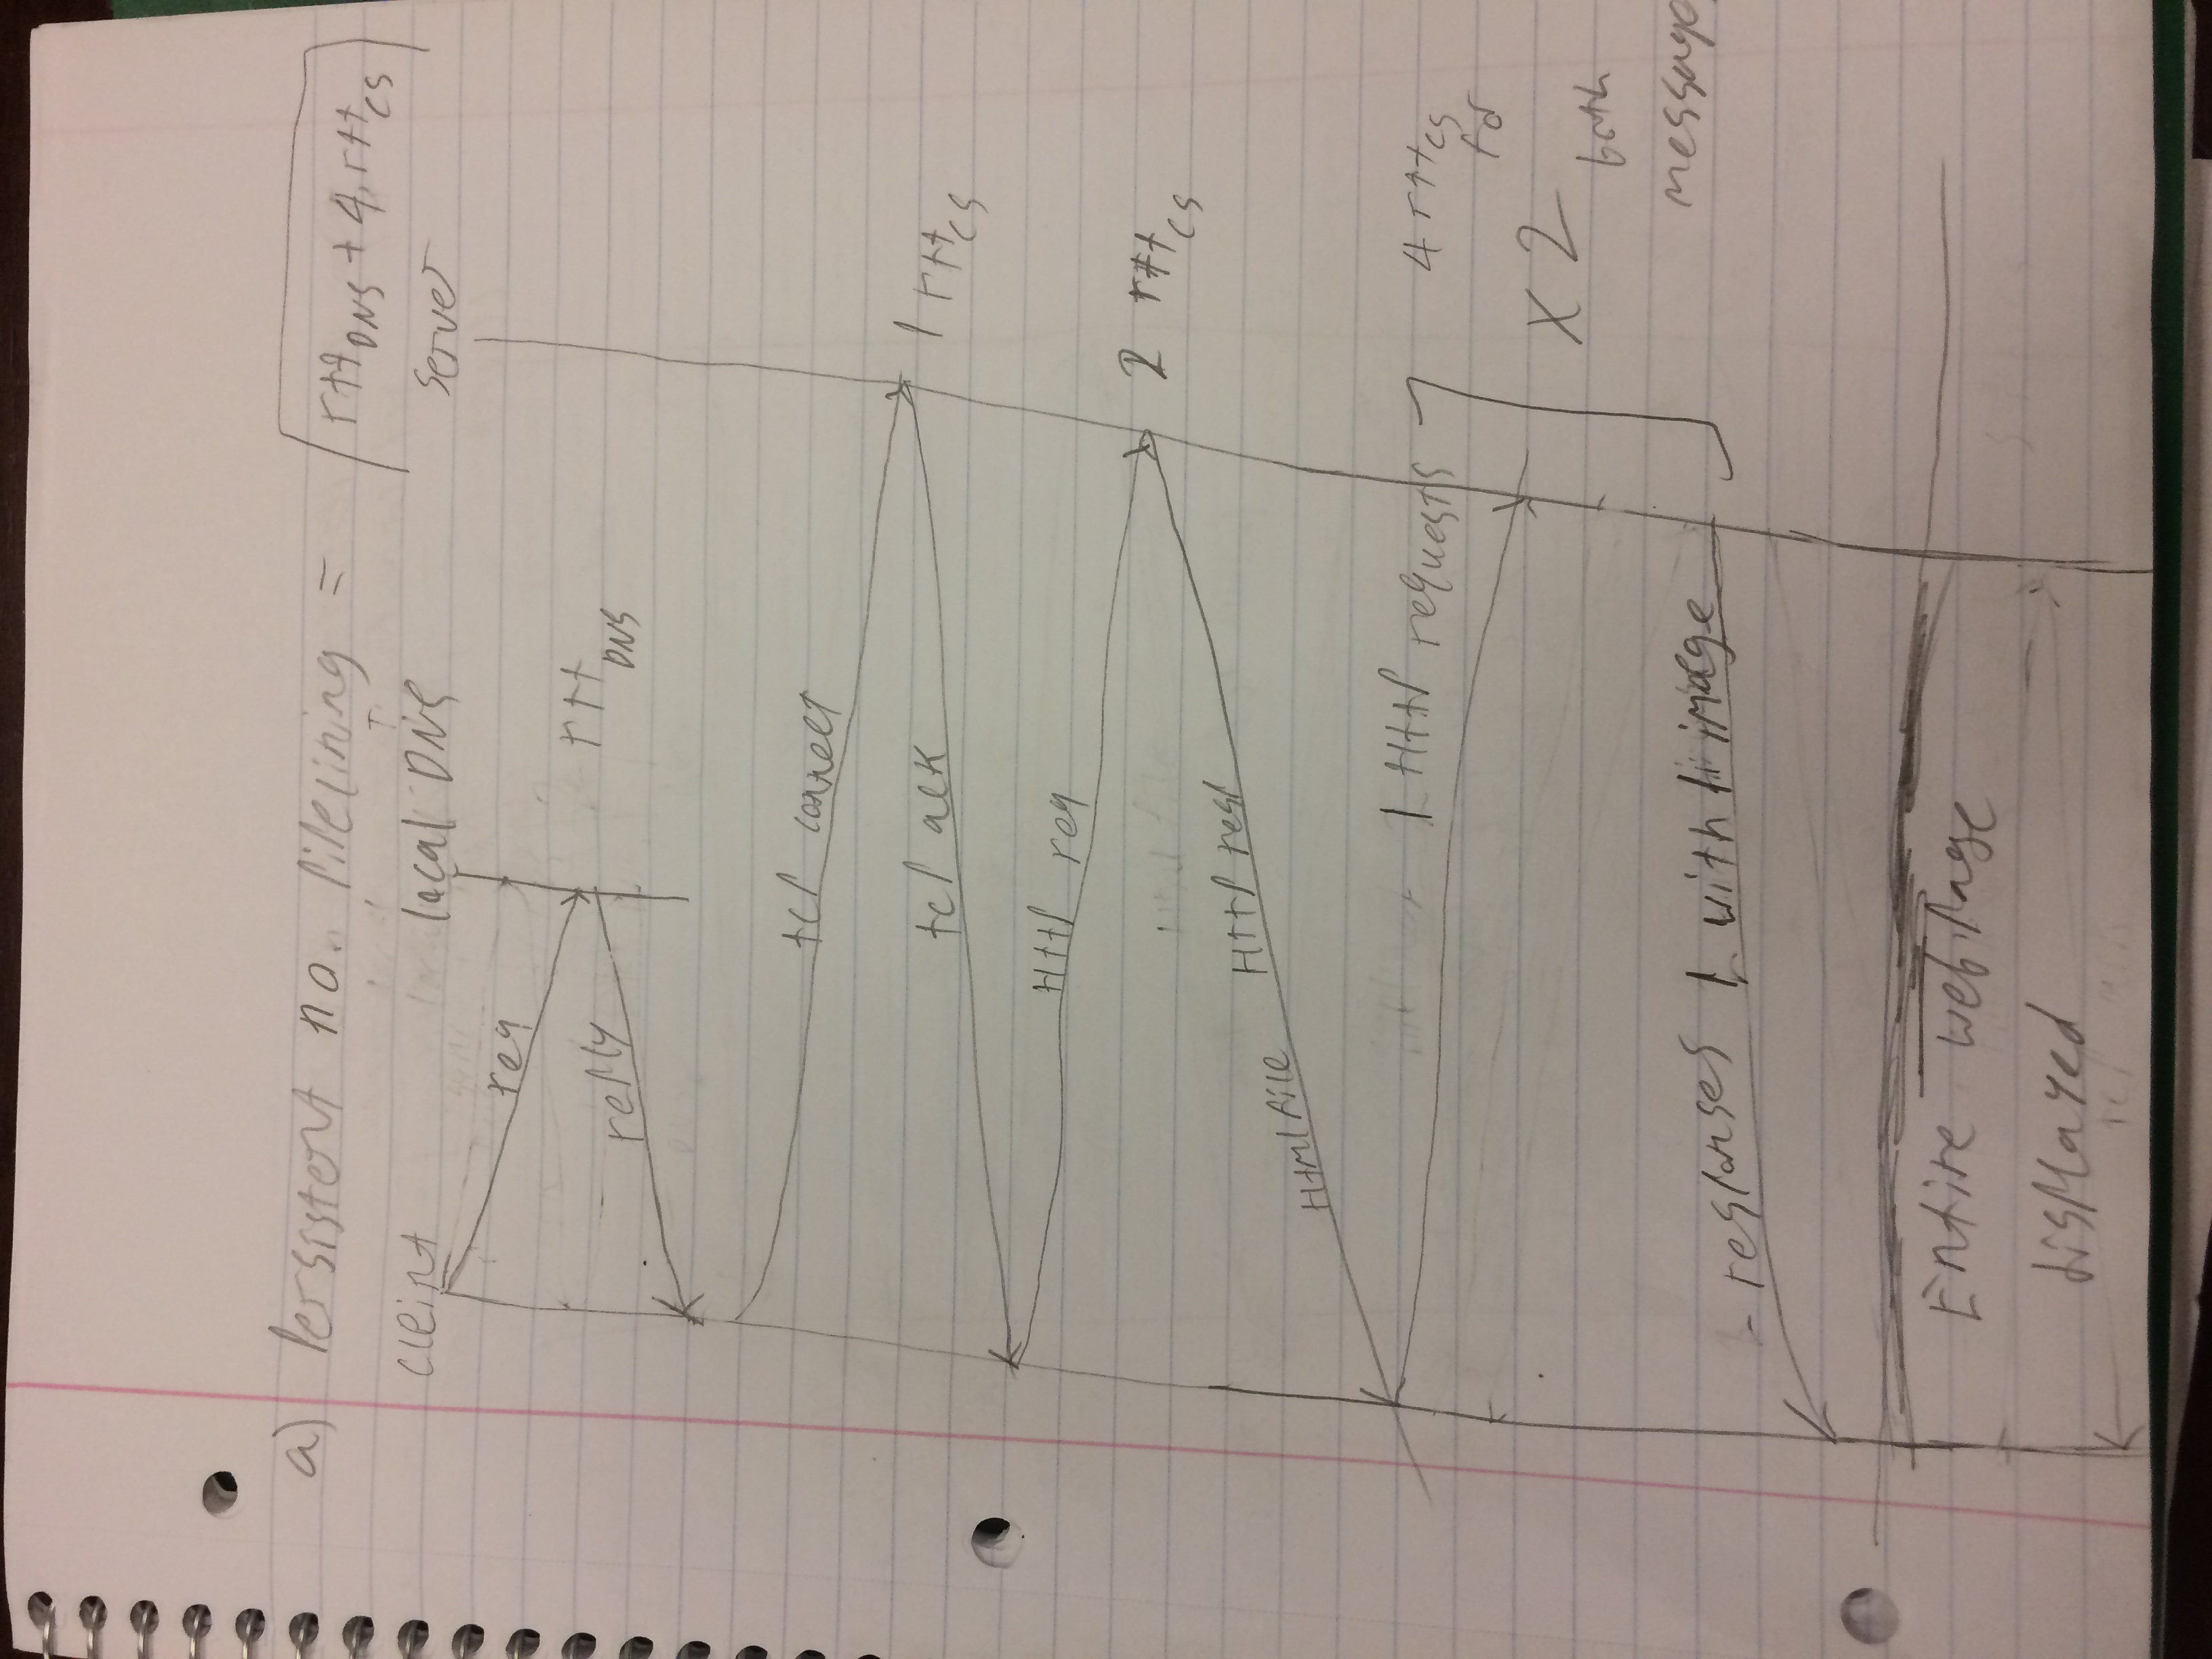 a) Persistent no. pipelining = rtt DNS + 4.rtt CS
cleint local DNS server
req
rtt DNS
reply
tcp connect
tcp ack 1 rtt CS
Http req
2 rtt CS
Http resp
Html file
1 Http requests 4 rtt CS
for
x 2
both
message
responses 1 with 1 image
Entire web page
displayed